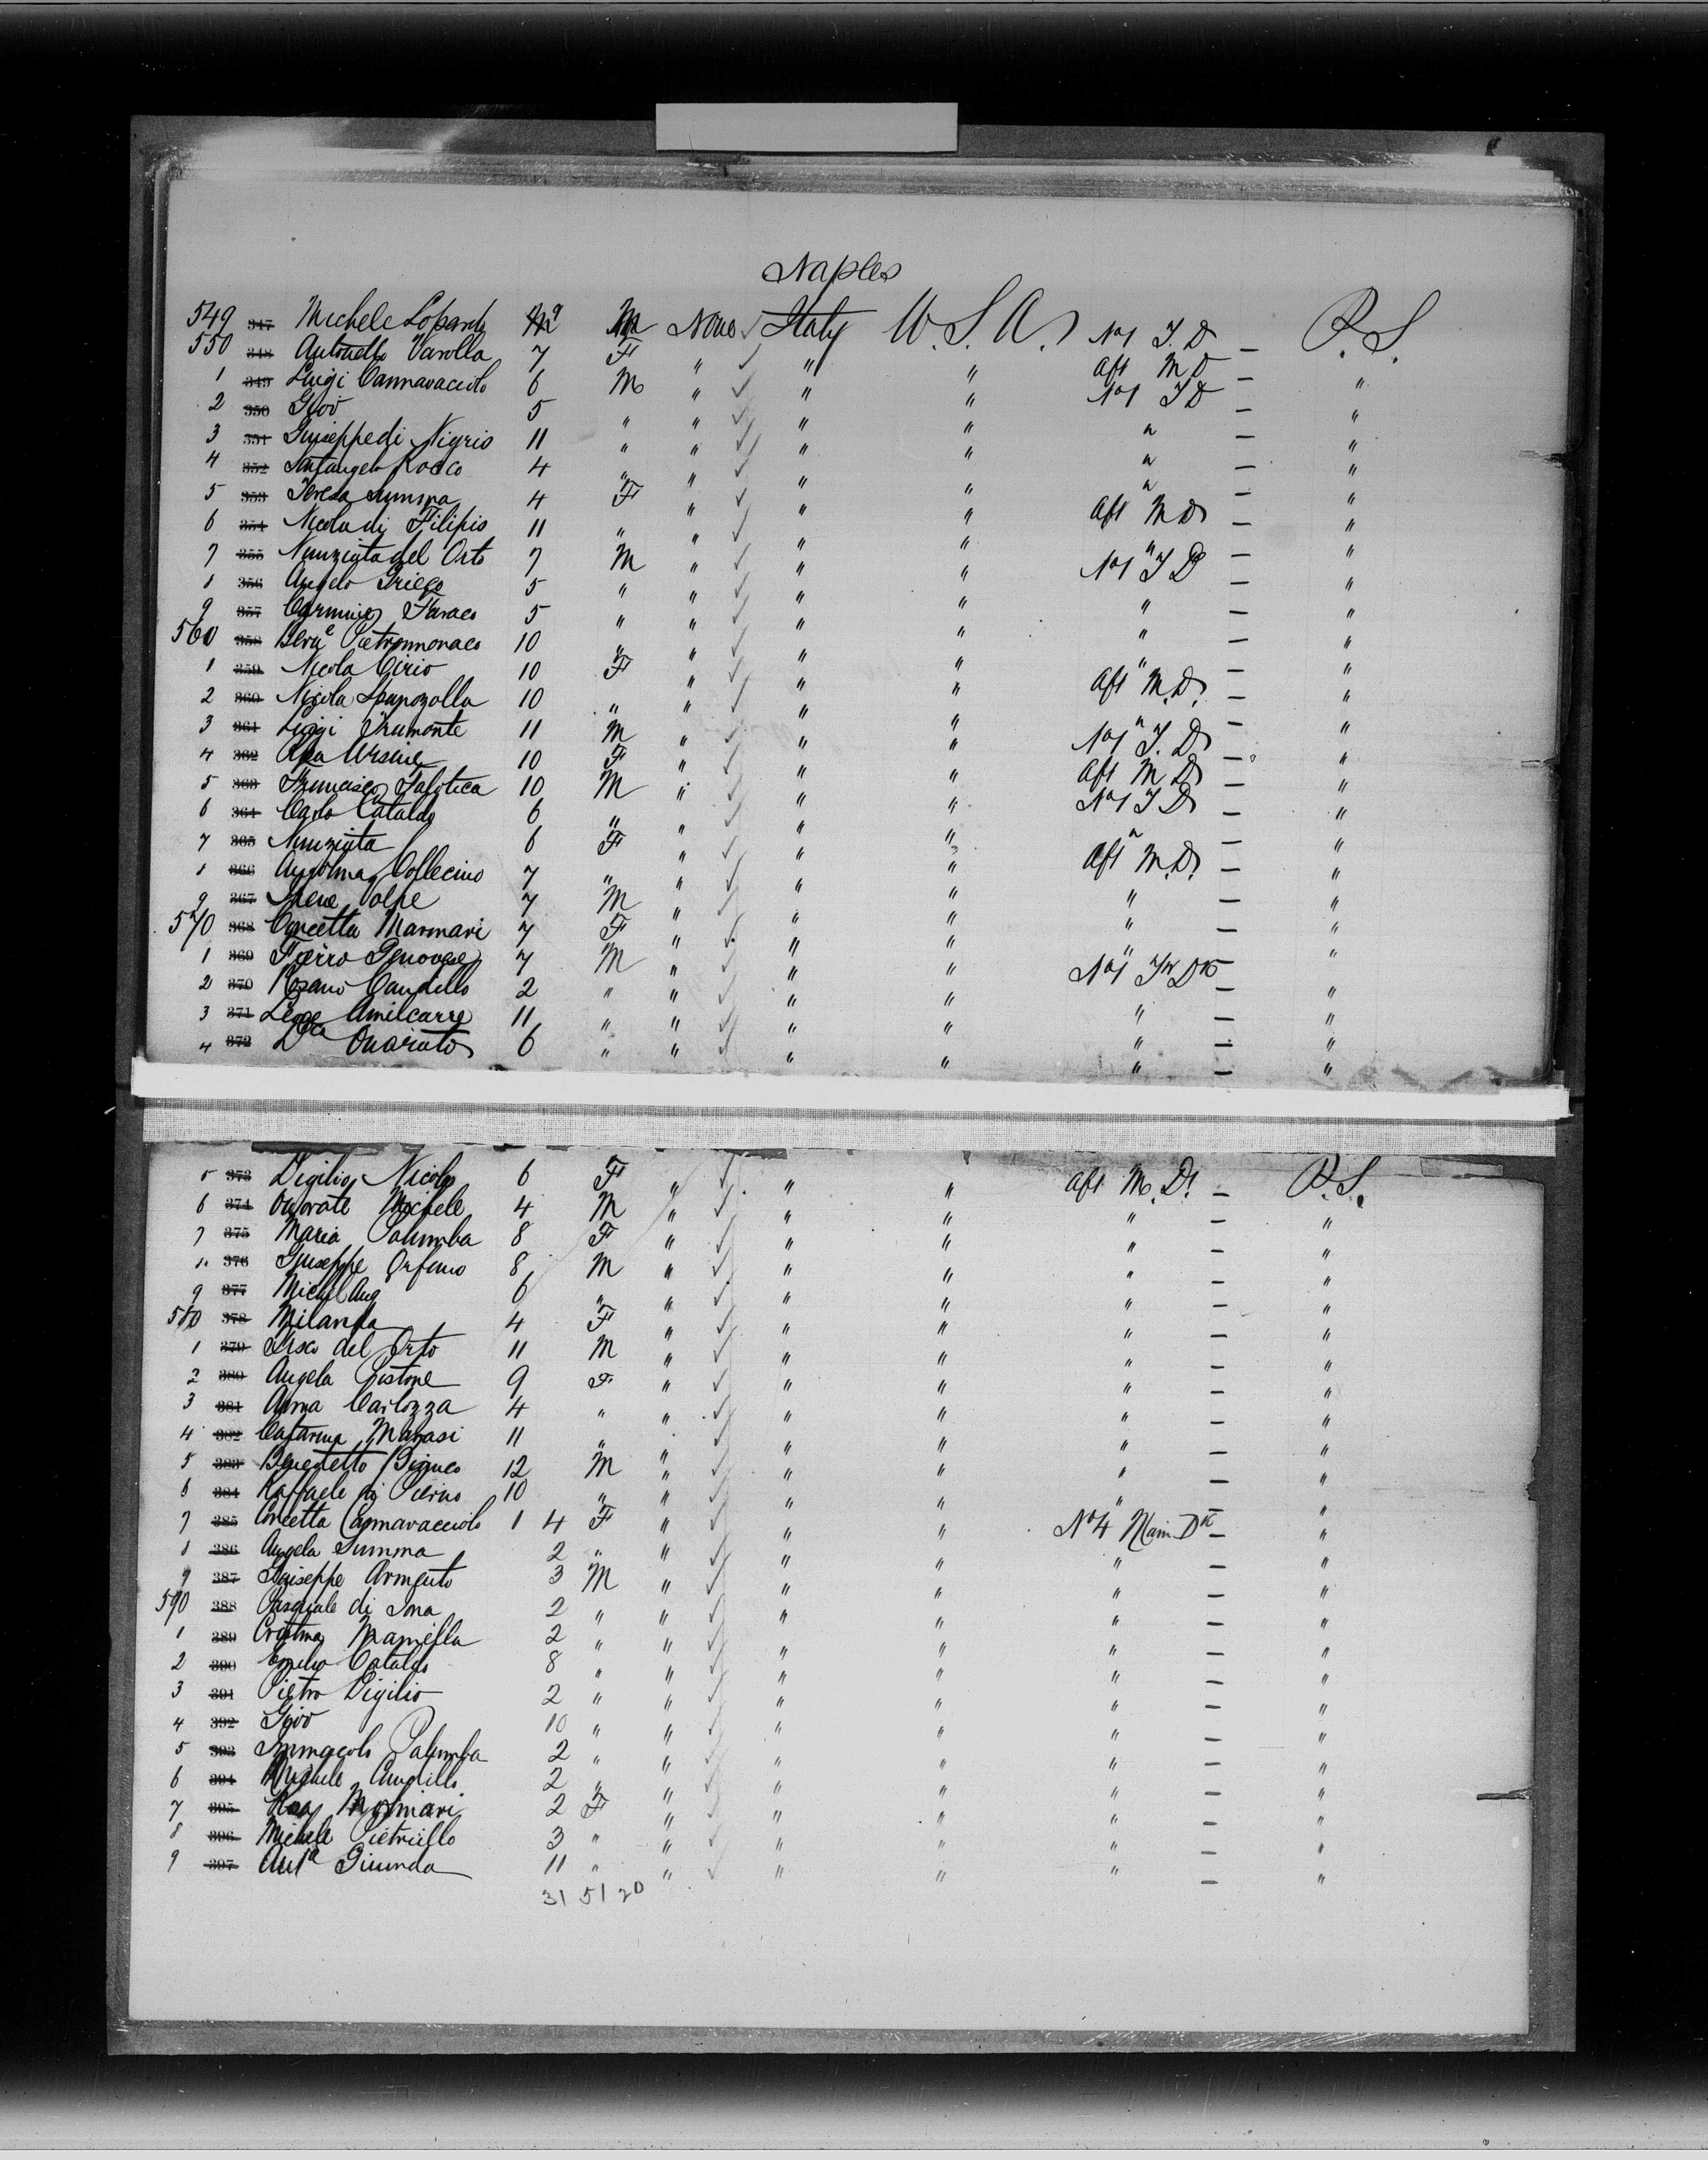 Naples
549 347 Michele Lopardy 9 M None Italy U.S.A. No1 T.D — P.S.
550 348 Antonetta Varolla 7 F " " " Aft M D — "
1 349 Luigi Cannavacciolo 6 M " " " No1 T D — "
2 350 Giov 5 " " " " " — "
3 351 Giuseppe di Nigris 11 " " " " " — "
4 352 Santangelo Rocco 4 " " " " " — "
5 353 Teresa Summa 4 F " " " Aft M D — "
6 354 Nicola di Filipis 11 " " " " " — "
7 355 Nunziata del Orto 7 M " " " No1 T D — "
8 356 Angelo Griego 5 " " " " " — "
9 357 Carmine Faraco 5 " " " " " — "
560 358 Pietromonaco 10 " " " " " — "
1 359 Nicola Cirio 10 F " " " Aft M.D. — "
2 360 Nicola 10 " " " " " — "
3 361 Luigi 11 M " " " No1 T. D — "
4 362 10 F " " " Aft M D — "
5 363 Francisco 10 M " " " No1 T D — "
6 364 Carlo Cataldo 6 " " " " " — "
7 365 Nunziata 6 F " " " Aft M.D. — "
8 366 Collecino 7 " " " " " — "
9 367 Irene Volpe 7 M " " " " — "
570 368 Concetta Marmari 7 F " " " " — "
1 369 Fierro Genovese 7 M " " " No1 Tw Dk — "
2 370 Rosario Candillo 2 " " " " " — "
3 371 Leone Amilcarre 11 " " " " " — "
4 372 Onorato 6 " " " " " — "
5 373 Digilio Nicola 6 F " " " Aft M. D. — P.S.
6 374 Onorate Michele 4 M " " " " — "
7 375 Maria Palumba 8 F " " " " — "
8 376 Giuseppe Orfano 8 M " " " " — "
9 377 Michel Ang 6 " " " " " — "
580 378 Milanda 4 F " " " " — "
1 379 del Orto 11 M " " " " — "
2 380 Angela Pistone 9 F " " " " — "
3 381 Anna Carlozza 4 " " " " " — "
4 382 Catarina Marasi 11 " " " " " — "
5 383 Benedetto 12 M " " " " — "
6 384 Raffaele di Pierno 10 " " " " " — "
7 385 Concetta Cannavacciolo 1 4 F " " " No 4 Main Dk — "
8 386 Angela Summa 2 " " " " " — "
9 387 Giuseppe Armento 3 M " " " " — "
590 388 Pasquale di Iona 2 " " " " " — "
1 389 Cristina Maniella 2 " " " " " — "
2 390 Emilio Cataldo 8 " " " " " — "
3 391 Pietro Digilio 2 " " " " " — "
4 392 Giov 10 " " " " " — "
5 393 Immacola Palumba 2 " " " " " — "
6 394 Michele Candillo 2 " " " " " — "
7 395 Rosa Marmari 2 F " " " " — "
8 396 Michele Pietriello 3 " " " " " — "
9 397 Anta Giunda 11 " " " " " — "
31 51 20